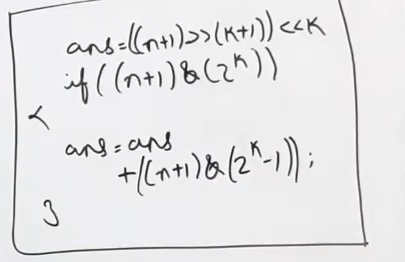 ans=((n+1)>>(k+1))<<k
if((n+1)&(2^k))
{
ans=ans
+((n+1)&(2^k-1));
}